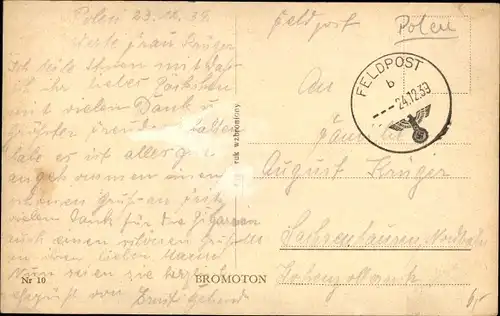 Polen 23.12.39
Werte Frau Krüger
Ich teile Ihnen mit daß
ich ihr liebes Päckchen
mit vielen Dank u
größter Freude erhalten
habe es ist alles gut
angekommen einen
schönen Gruß an
vielen Dank für die Zigarren
auch einen schönen Gruß
an ihren lieben Mann
Nun seien sie herzlich
gegrüßt von Ernst
Nr 10
BROMOTON
ruk wzbroniony
Feldpost
Polen
FELDPOST
b
--- 24.12.39
An
Familie
August Krüger
Sachsenhausen Nordbahn